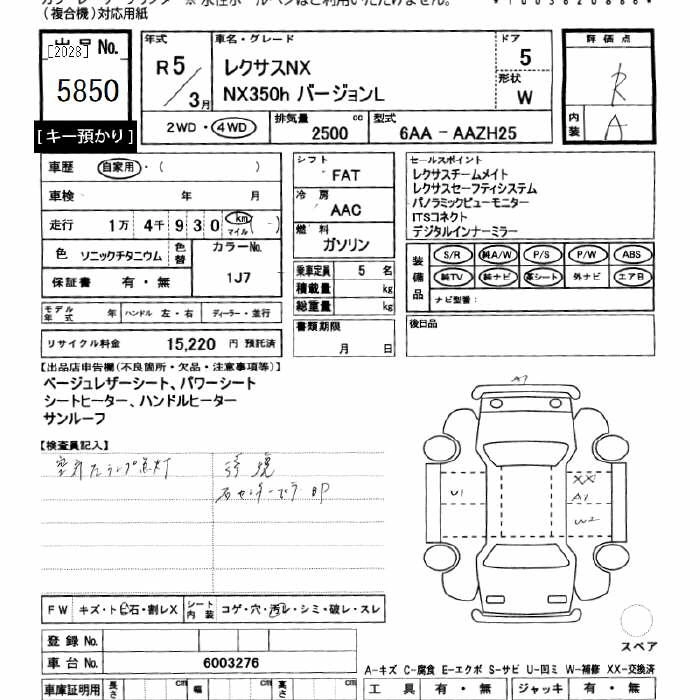 (複合機)対応用紙
出品No.
[2028]
5850
[キー預かり]
年式
R5/3月
車名・グレード
レクサスNX
NX350h バージョンL
ドア
5
形状
W
評価点
R
内装
A
2WD・4WD
排気量
2500 cc
型式
6AA - AAZH25
車歴 自家用・( )
車検 年 月
走行 1万 4千 930 km マイル (-)
色 ソニックチタニウム
色替
カラーNo.
1J7
保証書 有・無
モデル年式 年
ハンドル 左・右
ディーラー・並行
リサイクル料金 15,220 円 預託済
シフト
FAT
冷房
AAC
燃料
ガソリン
乗車定員 5 名
積載量 kg
総重量 kg
書類期限
月 日
セールスポイント
レクサスチームメイト
レクサスセーフティシステム
パノラミックビューモニター
ITSコネクト
デジタルインナーミラー
装備品
S/R 純A/W P/S P/W ABS
純TV 純ナビ 革シート 外ナビ エアB
ナビ型番:
後日品
【出品店申告欄(不良箇所・欠品・注意事項等)】
ベージュレザーシート、パワーシート
シートヒーター、ハンドルヒーター
サンルーフ
【検査員記入】
空気圧ランプ点灯
右センターピラー凹
A1
U1
XX
A1
W2
FW キズ・トビ石・割レX
シート内装 コゲ・穴・汚レ・シミ・破レ・スレ
登録No.
車台No. 6003276
スペア
A-キズ C-腐食 E-エクボ S-サビ U-凹ミ W-補修 XX-交換済
車庫証明用 長さ cm 幅 cm 高さ cm
工具 有・無 ジャッキ 有・無